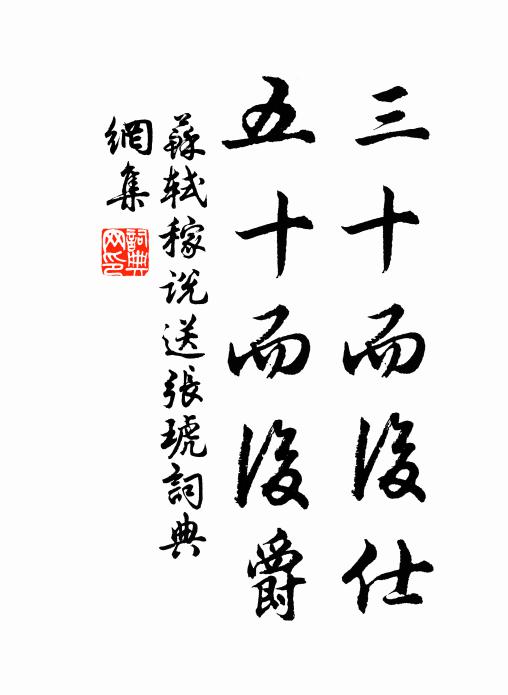 三十而後仕
五十而後爵
蘇軾稼說送張琥詞典
網集
詞典
网印